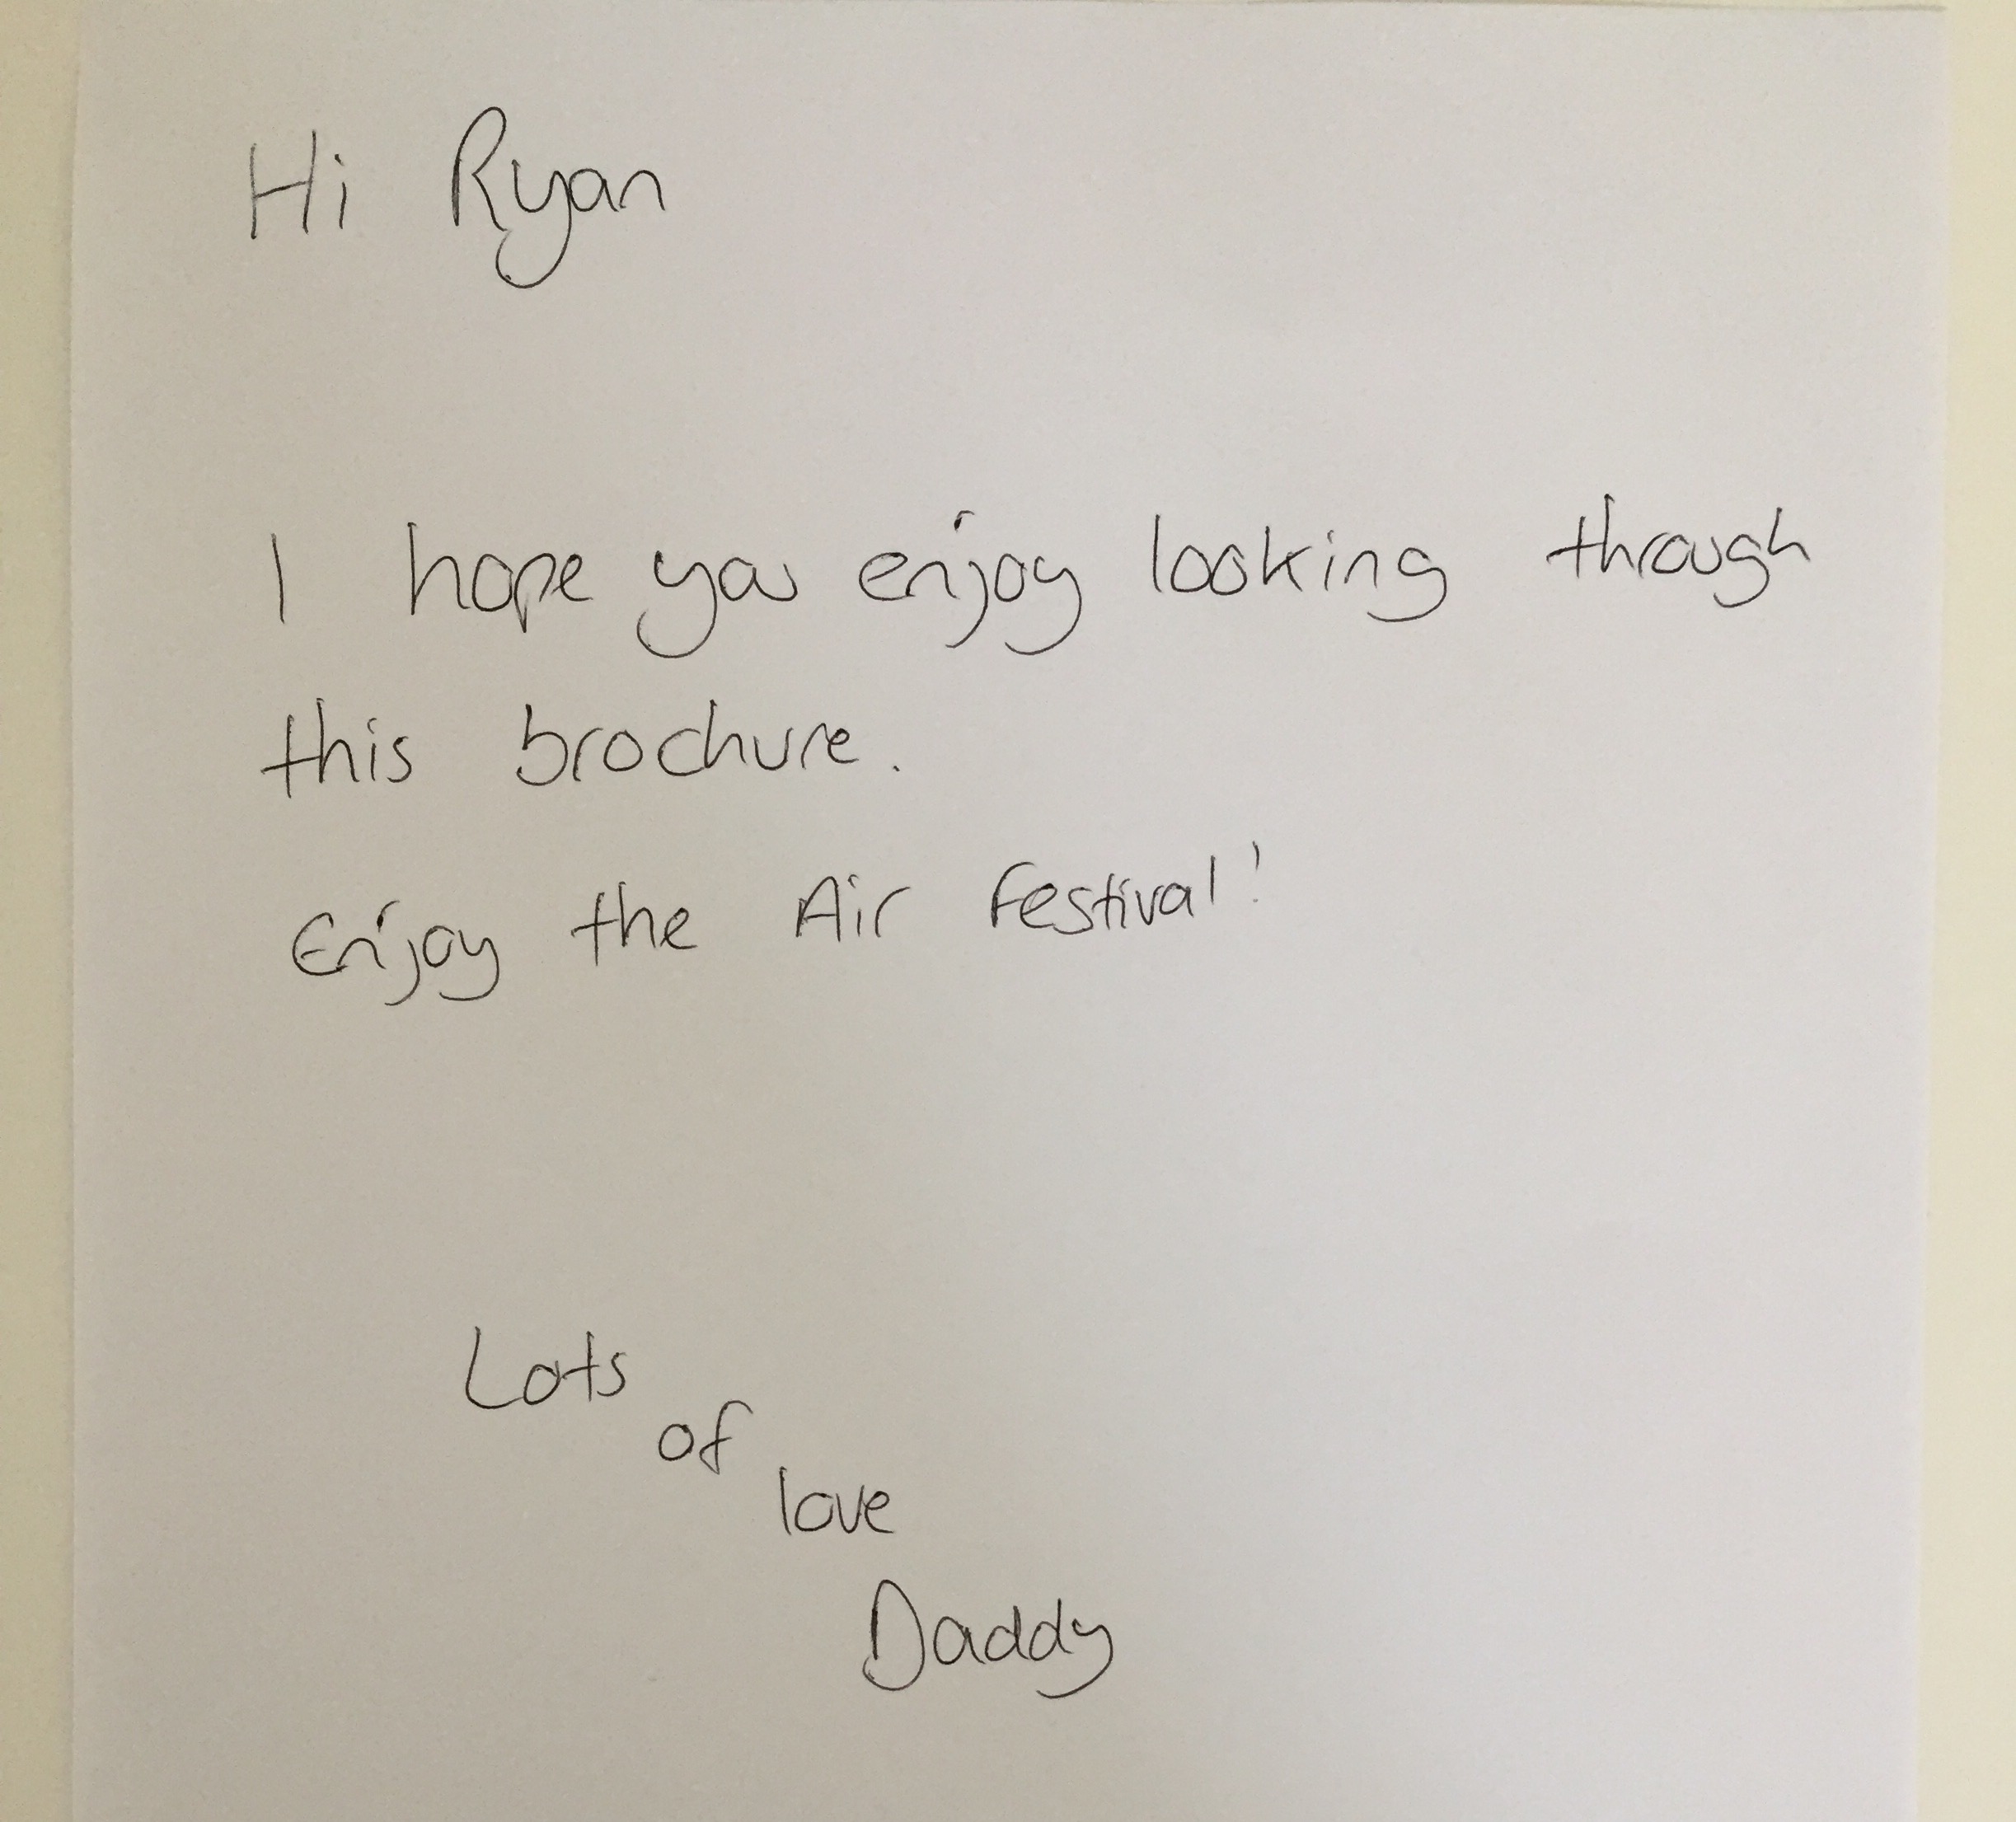 Hi Ryan
I hope you enjoy looking through
this brochure.
Enjoy the Air Festival!
Lots
of
love
Daddy